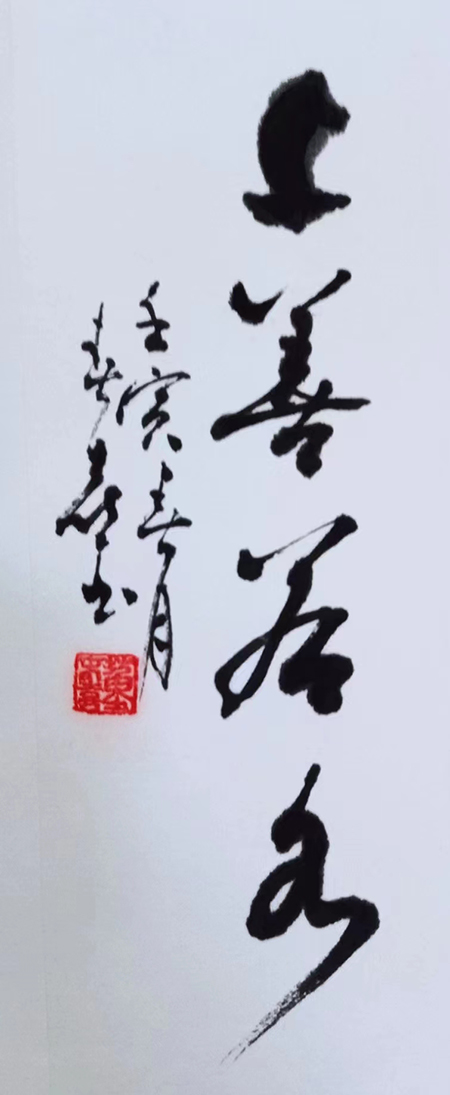 上善若水
壬寅春月
春
书